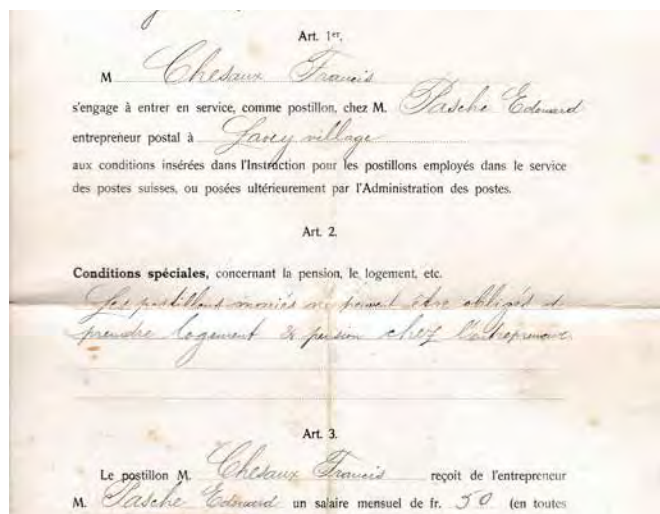 Art. 1er.
M Chesaux Francis
s'engage à entrer en service, comme postillon, chez M. Pasche Edouard
entrepreneur postal à Lavey village
aux conditions insérées dans l'Instruction pour les postillons employés dans le service
des postes suisses, ou posées ultérieurement par l'Administration des postes.
Art. 2.
Conditions spéciales, concernant la pension, le logement, etc.
Les postillons mariés ne peuvent être obligés de
prendre logement & pension chez l'entrepreneur
Art. 3.
Le postillon M. Chesaux Francis reçoit de l'entrepreneur
M. Pasche Edouard un salaire mensuel de fr. 50 (en toutes